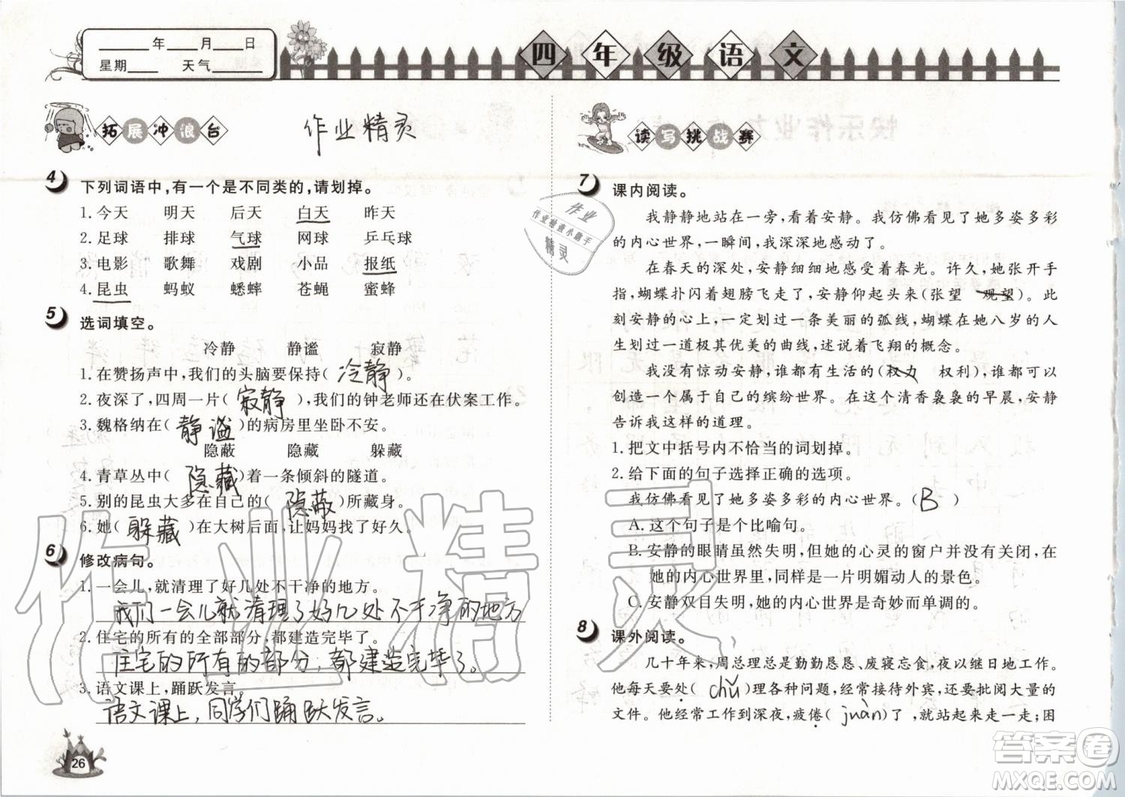 ____年____月____日
星期____ 天气____
四年级语文
拓展冲浪台
作业精灵
4 下列词语中，有一个是不同类的，请划掉。
1. 今天 明天 后天 白天 昨天
2. 足球 排球 气球 网球 乒乓球
3. 电影 歌舞 戏剧 小品 报纸
4. 昆虫 蚂蚁 蟋蟀 苍蝇 蜜蜂
5 选词填空。
冷静 静谧 寂静
1. 在赞扬声中，我们的头脑要保持（冷静）。
2. 夜深了，四周一片（寂静），我们的钟老师还在伏案工作。
3. 魏格纳在（静谧）的病房里坐卧不安。
隐蔽 隐藏 躲藏
4. 青草丛中（隐藏）着一条倾斜的隧道。
5. 别的昆虫大多在自己的（隐蔽）所藏身。
6. 她（躲藏）在大树后面，让妈妈找了好久。
6 修改病句。
1. 一会儿，就清理了好几处不干净的地方。
我们一会儿就清理了好几处不干净的地方
2. 住宅的所有的全部部分，都建造完毕了。
住宅的所有的部分，都建造完毕了。
3. 语文课上，踊跃发言。
语文课上，同学们踊跃发言。
26
读写挑战赛
7 课内阅读。
我静静地站在一旁，看着安静。我仿佛看见了她多姿多彩
的内心世界，一瞬间，我深深地感动了。
在春天的深处，安静细细地感受着春光。许久，她张开手
指，蝴蝶扑闪着翅膀飞走了，安静仰起头来（张望 观望）。此
刻安静的心上，一定划过一条美丽的弧线，蝴蝶在她八岁的人
生划过一道极其优美的曲线，述说着飞翔的概念。
我没有惊动安静。谁都有生活的（权力 权利），谁都可以
创造一个属于自己的缤纷世界。在这个清香袅袅的早晨，安静
告诉我这样的道理。
1. 把文中括号内不恰当的词划掉。
2. 给下面的句子选择正确的选项。
我仿佛看见了她多姿多彩的内心世界。（B）
A. 这个句子是个比喻句。
B. 安静的眼睛虽然失明，但她的心灵的窗户并没有关闭，在
她的内心世界里，同样是一片明媚动人的景色。
C. 安静双目失明，她的内心世界是奇妙而单调的。
8 课外阅读。
几十年来，周总理总是勤勤恳恳、废寝忘食，夜以继日地工作。
他每天要处（chǔ）理各种问题，经常接待外宾，还要批阅大量的
文件。他经常工作到深夜，疲倦（juàn）了，就站起来走一走；困
作业
作业检查小助手
精灵
作业精灵
答案卷
MXQE.COM